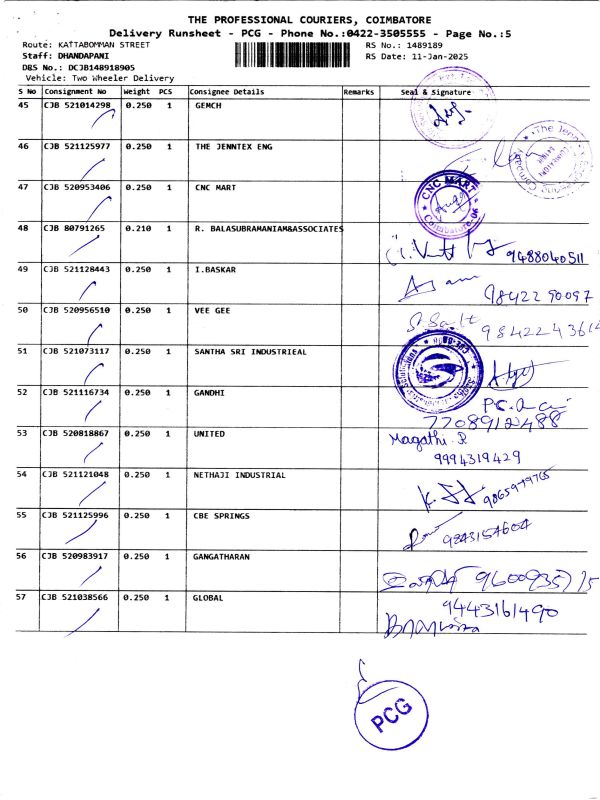 THE PROFESSIONAL COURIERS, COIMBATORE
Delivery Runsheet - PCG - Phone No.:0422-3505555 - Page No.:5
Route: KATTABOMMAN STREET RS No.: 1489189
Staff: DHANDAPANI RS Date: 11-Jan-2025
D&S No.: DCJB148918905
Vehicle: Two Wheeler Delivery
S No Consignment No Weight PCS Consignee Details Remarks Seal & Signature
45 CJB 521014298 0.250 1 GEMCH
46 CJB 521125977 0.250 1 THE JENNTEX ENG
The Jenn
47 CJB 520953406 0.250 1 CNC MART
CNC MART
Coimbatore-06
48 CJB 80791265 0.210 1 R. BALASUBRAMANIAM&ASSOCIATES
9488040511
49 CJB 521128443 0.250 1 I.BASKAR
98422 90097
50 CJB 520956510 0.250 1 VEE GEE
984224361
51 CJB 521073117 0.250 1 SANTHA SRI INDUSTRIEAL
52 CJB 521116734 0.250 1 GANDHI
53 CJB 520818867 0.250 1 UNITED
Magathi. R
9994319429
54 CJB 521121048 0.250 1 NETHAJI INDUSTRIAL
55 CJB 521125996 0.250 1 CBE SPRINGS
9843154604
56 CJB 520983917 0.250 1 GANGATHARAN
57 CJB 521038566 0.250 1 GLOBAL
9443161490
PCG